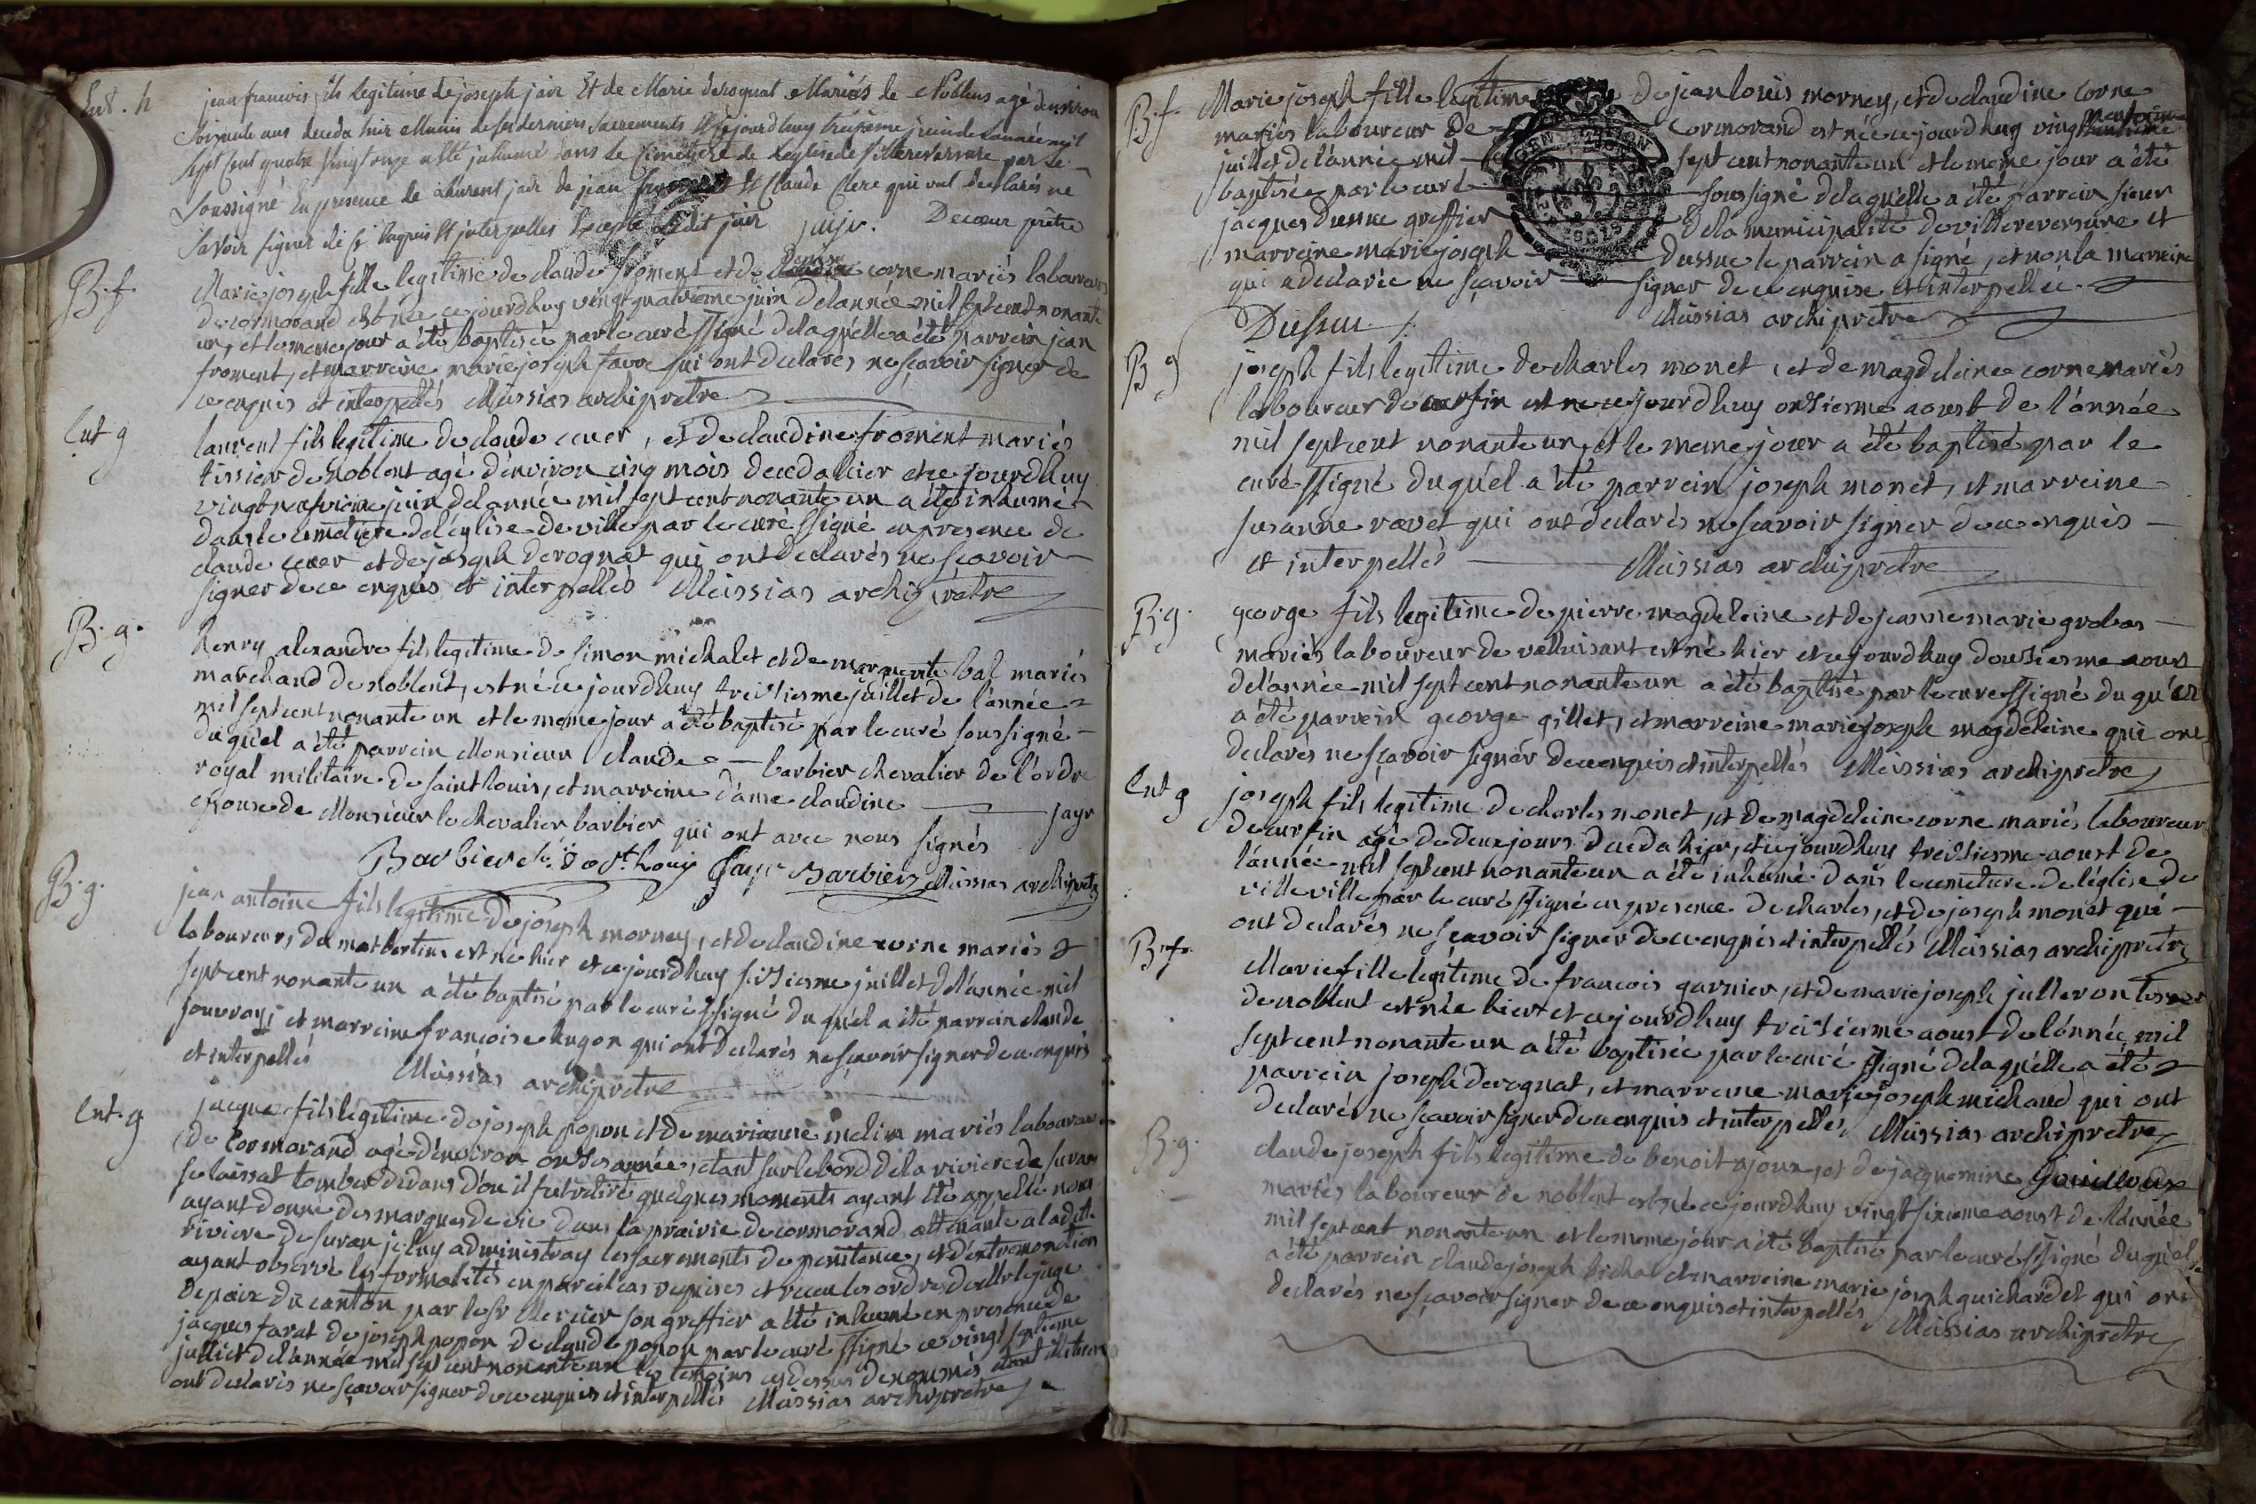 Ent. h
jean francois fils legitime de joseph jair Et de Marie derognat Mariés de Noblens agé denviron
soixante ans deceda hier Munis de ses derniers sacrements Et cejourdhuy treisieme juin de lannée mil
sept cent quatre vingt onze a été inhumé dans le Cimetiere de leglise de villereversure par le
soussigné En presence de laurent jair de jean francois Et Claude Clerc qui ont declarés ne
savoir signer de ce Enquis Et interpelles Excepté ledit jair jaijr. Decœur prêtre
B. f.
Marie joseph fille legitime de claude froment et de denise corne mariés laboureurs
de cormorand est née cejourdhuy vingt quatrieme juin de lannée mil sept cent nonante
un, et le meme jour a été baptisée par le curé ssigné de laquélle a été parrein jean
froment, et marreine marie joseph favre qui ont declarés ne sçavoir signer de
ce enquis et interpellés Missias archiprêtre
Ent g
laurent fils legitime de claude cuer, et de claudine froment mariés
tissier de noblent agé d'environ cinq mois deceda hier et ce jourdhuy
vingt neufvieme juin de lannée mil sept cent nonante un a été inhumé
dans le cimetiere de l'église de ville par le curé ssigné en presence de
claude cuer et de joseph derognat qui ont declarés ne scavoir
signer de ce enquis et interpellés Missias archiprêtre
B. g.
henry alexandre fils legitime de simon michalet et de marguerite bal mariés
marchand de noblent, est né ce jourdhuy treisiesme juillet de l'année
mil sept cent nonante un et le meme jour a été baptisé par le curé soussigné
duquel a été parrein Monsieur claude barbier chevalier de l'ordre
royal militaire de saint louis, et marreine dame claudine jayr
epouse de Monsieur le chevalier barbier qui ont avec nous signés
Barbier ch. de St. Louis Jayr Barbier Missias archiprêtre
B. g.
jean antoine fils legitime de joseph morney, et de claudine corne mariés
laboureurs, de montbertin est né hier et cejourdhuy seisiesme juillet de l'année mil
sept cent nonante un a été baptisé par le curé ssigné du quél a été parrein claude
jouvray, et marreine francoise hugon qui ont declarés ne sçavoir signer de ce enquis
et interpellés Missias archiprêtre
Ent. g
jacque fils legitime de joseph popon et de marianne mariés laboureur
de Cormorand agé d'environ onze année, etant sur le bord de la riviere de suran
se laissat tomber dedans d'ou il fut retiré quélques moments ayant été appellé nous
ayant donné des marques de vie dans la prairie de cormorand attenante a ladite
riviere de suran je luy administray les sacrements de penitence, et d'extremonction
ayant observé les formalités en pareil cas requises et receu les ordres de Mr le juge
de paix du canton par le Sr Mercier son greffier a été inhumé en presence de
jacques farat de joseph popon de claude popon par le curé ssigné ce vingt septieme
juillet de l'année mil sept cent nonante un les temoins cy dessus denommés
ont declarés ne sçavoir signer de ce enquis et interpellés Missias archiprêtre
B. f.
Marie joseph fille legitime de jean louis morney, et de claudine corne
mariés laboureur de Cormorand est née ce jourdhuy vingt
juillet de l'année mil sept cent nonante un et le meme jour a été
baptisée par le curé soussigné de laquélle a été parrein sieur
jacques dussuc greffier de la municipalité de villereversure et
marreine marie joseph dussuc le parrein a signé, et non la marreine
qui a declarée ne sçavoir signer de ce enquise et interpellée.
Dussuc Missias archiprêtre
B g
joseph fils legitime de charles monet, et de magdeleine corne mariés
laboureur de curfin est né ce jourdhuy onsiesme aoust de l'année
mil sept cent nonante un, et le meme jour a été baptisé par le
curé ssigné duquél a été parrein joseph monet, et marreine
susanne ravet qui ont declarés ne scavoir signer de ce enquis
et interpellés Missias archiprêtre
B. g.
george fils legitime de pierre magdeleine et de jeanne marie grobas
mariés laboureur de valluisant est né hier et cejourdhuy dousiesme aoust
de l'année mil sept cent nonante un a été baptisé par le curé ssigné du quél
a été parrein george gillet, et marreine marie joseph magdeleine qui ont
declarés ne sçavoir signer de ce enquis et interpellés Missias archiprêtre
Ent g
joseph fils legitime de charles monet, et de magdeleine corne mariés laboureur
de curfin agé de deux jours deceda hier, et cejourdhuy treisiesme aoust de
l'année mil sept cent nonante un a été inhumé dans le cimetiere de l'église de
ville ville par le curé ssigné en presence de charles, et de joseph monet qui
ont declarés ne sçavoir signer de ce enquis et interpellés Missias archiprêtre
B. f.
Marie fille legitime de francois garnier, et de marie joseph julleron
de noblent est née hier et cejourdhuy treisiesme aoust de l'année mil
sept cent nonante un a été baptisée par le curé ssigné de laquélle a été
parrein joseph derognat, et marreine marie joseph michaud qui ont
declarés ne sçavoir signer de ce enquis et interpellés Missias archiprêtre
B. g.
claude joseph fils legitime de benoit ajoux, et de jacquemine Guilloux
mariés laboureur de noblent est né ce jourdhuy vingt sixieme aoust de l'année
mil sept cent nonante un et le meme jour a été baptisé par le curé ssigné duquél
a été parrein claude joseph et marreine marie joseph guichardet qui ont
declarés ne sçavoir signer de ce enquis et interpellés Missias archiprêtre